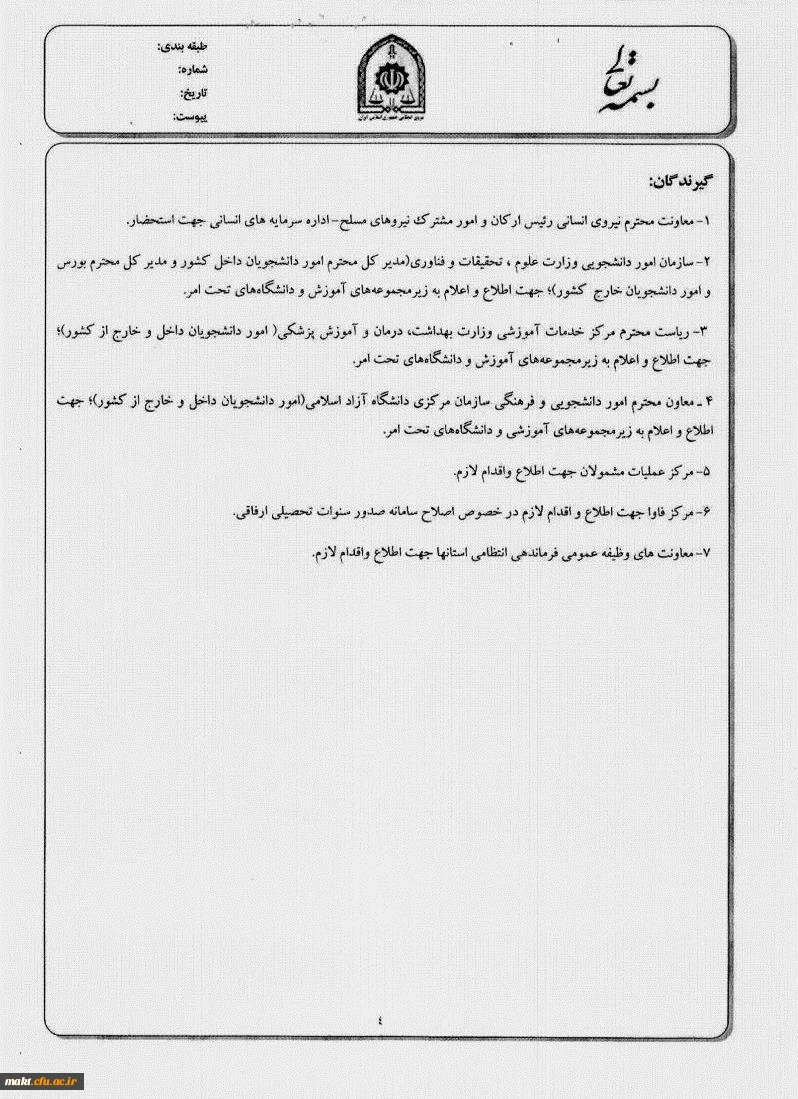 بسمه تعالی
نیروی انتظامی جمهوری اسلامی ایران
طبقه بندی:
شماره:
تاریخ:
پیوست:
گیرندگان:
۱- معاونت محترم نیروی انسانی رئیس ارکان و امور مشترک نیروهای مسلح- اداره سرمایه های انسانی جهت استحضار.
۲- سازمان امور دانشجویی وزارت علوم ، تحقیقات و فناوری(مدیر کل محترم امور دانشجویان داخل کشور و مدیر کل محترم بورس
و امور دانشجویان خارج کشور)؛ جهت اطلاع و اعلام به زیرمجموعه‌های آموزش و دانشگاه‌های تحت امر.
۳- ریاست محترم مرکز خدمات آموزشی وزارت بهداشت، درمان و آموزش پزشکی( امور دانشجویان داخل و خارج از کشور)؛
جهت اطلاع و اعلام به زیرمجموعه‌های آموزش و دانشگاه‌های تحت امر.
۴ ـ معاون محترم امور دانشجویی و فرهنگی سازمان مرکزی دانشگاه آزاد اسلامی(امور دانشجویان داخل و خارج از کشور)؛ جهت
اطلاع و اعلام به زیرمجموعه‌های آموزشی و دانشگاه‌های تحت امر.
۵- مرکز عملیات مشمولان جهت اطلاع واقدام لازم.
۶- مرکز فاوا جهت اطلاع و اقدام لازم در خصوص اصلاح سامانه صدور سنوات تحصیلی ارفاقی.
۷- معاونت های وظیفه عمومی فرماندهی انتظامی استانها جهت اطلاع واقدام لازم.
٤
makt.cfu.ac.ir